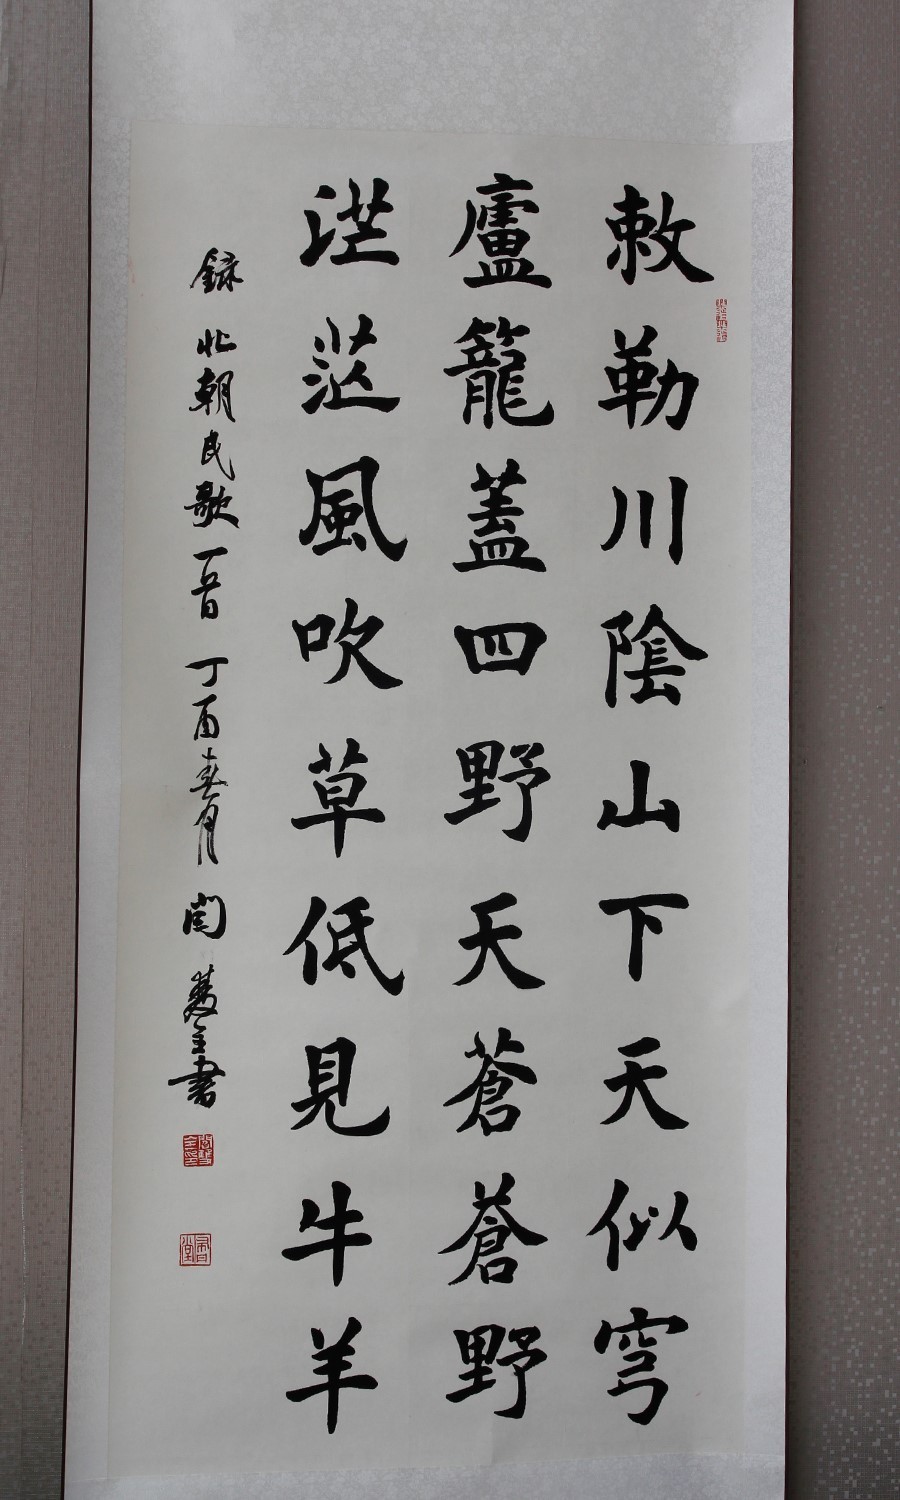 敕勒川陰山下天似穹
廬籠蓋四野天蒼蒼野
茫茫風吹草低見牛羊
録北朝民歌一首 丁酉春月 閆全書